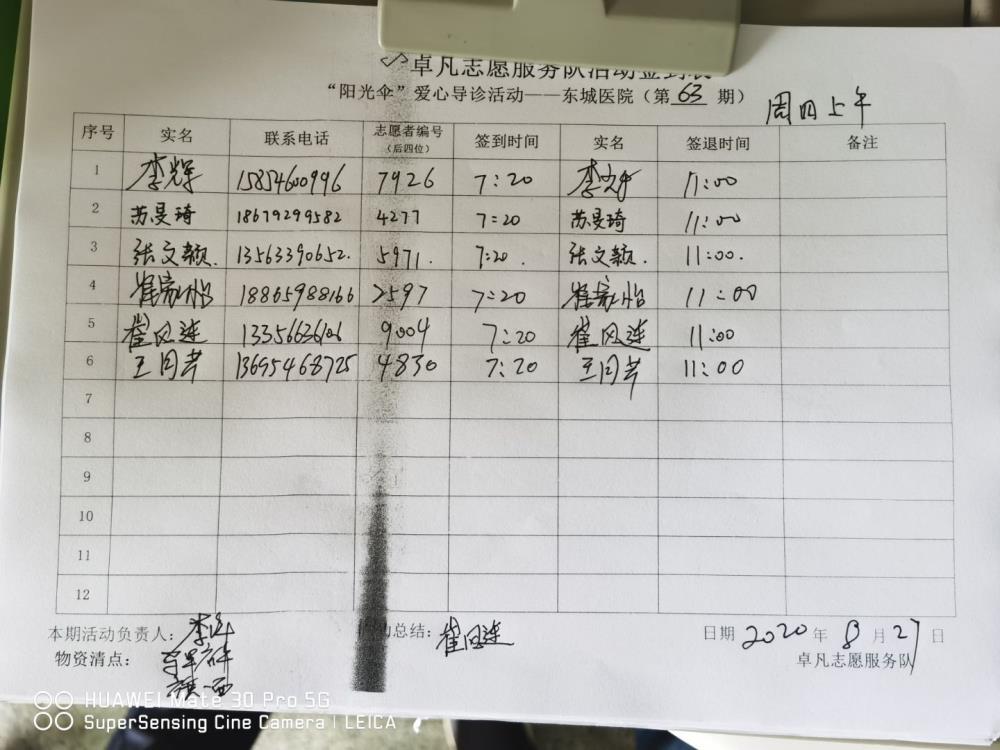 卓凡志愿服务队活动签到表
“阳光伞”爱心导诊活动——东城医院（第 63 期）
周四上午
序号 实名 联系电话 志愿者编号（后四位） 签到时间 实名 签退时间 备注
1 李辉 15854600996 7926 7:20 李辉 11:00
2 苏曼琦 18679299582 4277 7:20 苏曼琦 11:00
3 张文颖. 13563390652. 5971. 7:20. 张文颖. 11:00.
4 崔家怡 18865988166 2597 7:20 崔家怡 11:00
5 崔风连 13356636106 9004 7:20 崔风连 11:00
6 王同芹 13695468725 4830 7:20 王同芹 11:00
7
8
9
10
11
12
本期活动负责人： 总结：崔风连 日期 2020 年 8 月 27 日
物资清点： 卓凡志愿服务队
HUAWEI Mate 30 Pro 5G
SuperSensing Cine Camera | LEICA